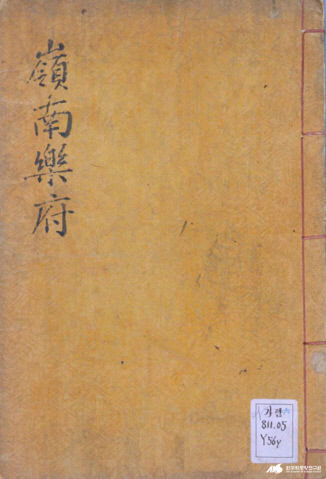 嶺南樂府
가람
811.05
Y56y
한국학중앙연구원